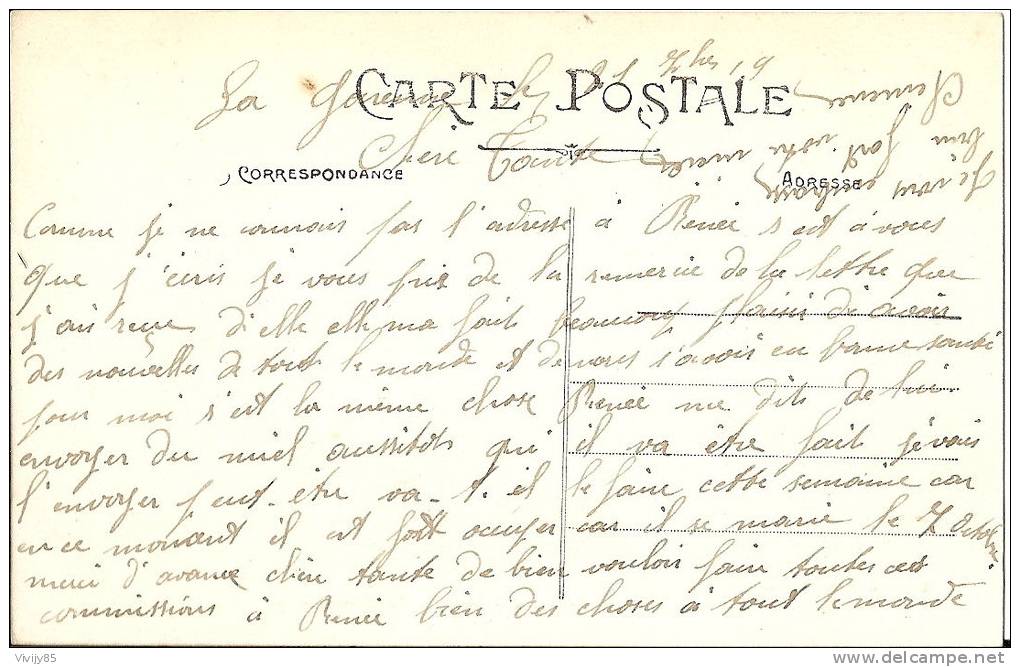 La le 21 7bre 19
CARTE POSTALE
Chère Tante
CORRESPONDANCE
ADRESSE
Comme je ne connais pas l'adresse à Renée s'est à vous
que j'écris je vous prie de la remercie de la lettre que
j'ais reçue d'elle elle ma fait beaucoup plaisir d'avoir
des nouvelles de tout le monde et de vous s'avoir en bonne santé
pour moi s'est la même chose Renée me dits de lui
envoyer du miel aussitôt qu'il va être fait je vais
l'envoyer peut-être va-t-il le faire cette semaine car
en ce moment il est fort occuper car il se marie le 7 octobre
merci d'avance chère tante de bien vouloir faire toutes ces
commissions à Renée bien des choses à tout le monde
Je vous embrasse
bien fort votre nièce
Vivijy85
www.delcampe.net